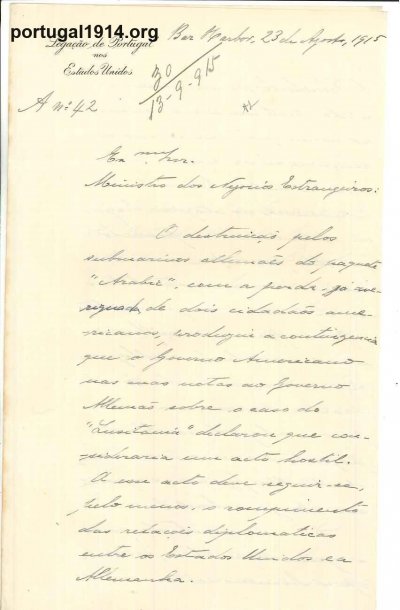 portugal1914.org
Legação de Portugal
nos
Estados Unidos
Bar Harbor, 23 de Agosto, 1915
30
13-9-915
A nº 42
Exmo. Snr.
Ministro dos Negocios Estrangeiros:
O destruição pelos
submarinos allemães do paquete
"Arabic", com a perda já ave-
riguada de dois cidadãos ame-
ricanos, produziu a contingencia
que o Governo Americano
nas suas notas ao Governo
Allemão sobre o caso do
"Lusitania" declarou que con-
sideraria um acto hostil.
A esse acto deve seguir-se,
pelo menos, o rompimento
das relações diplomaticas
entre os Estados Unidos e a
Allemanha.